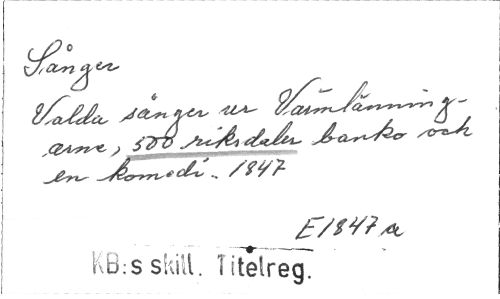 Sånger
Valda sånger ur Värmlänning-
arne, 500 riksdaler banko och
en komedi. 1847
E1847a
KB:s skill. Titelreg.